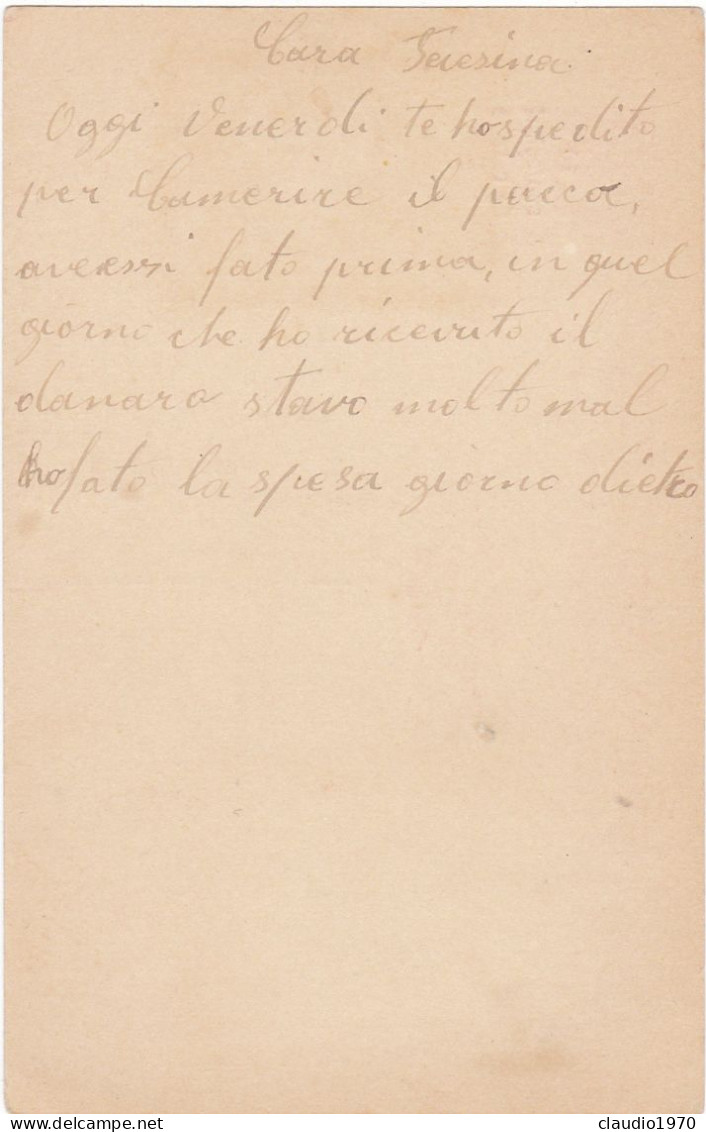 Cara Teresina
Oggi Venerdi te ho spedito
per Camerire il pacco,
avessi fato prima, in quel
giorno che ho ricevuto il
danaro stavo molto mal
ho fato la spesa giorno dietro
delcampe.net
claudio1970